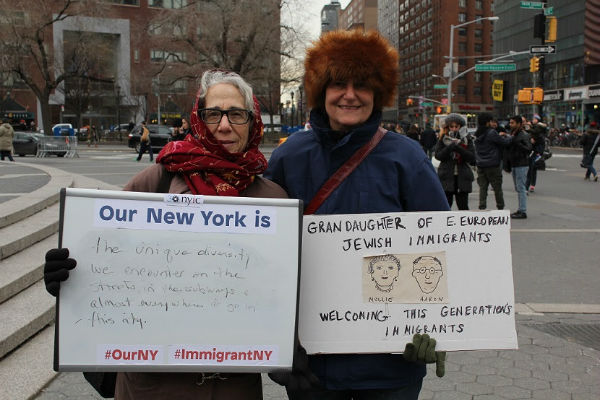 nyic
Our New York is
the unique diversity
we encounter on the
streets, in the subways &
almost everywhere we go in
this city.
#OurNY #ImmigrantNY
GRANDAUGHTER OF E.EUROPEAN
JEWISH IMMIGRANTS
MOLLIE AARON
WELCOMING THIS GENERATION'S
IMMIGRANTS